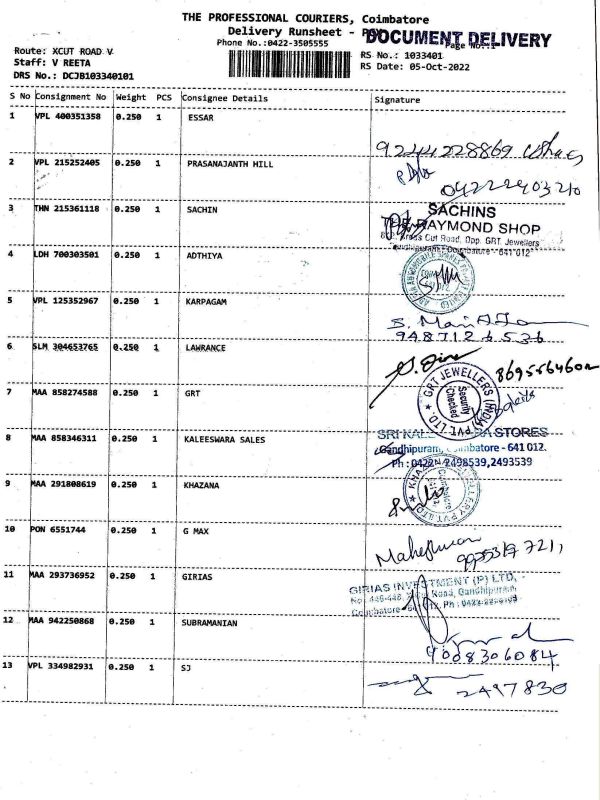 THE PROFESSIONAL COURIERS, Coimbatore
Delivery Runsheet - P
DOCUMENT DELIVERY
Phone No.:0422-3505555
Page No.:1
Route: XCUT ROAD V
RS No.: 1033401
Staff: V REETA
RS Date: 05-Oct-2022
DRS No.: DCJB103340101
S No Consignment No Weight PCS Consignee Details Signature
1 VPL 400351358 0.250 1 ESSAR
9244228869
2 VPL 215252405 0.250 1 PRASANAJANTH HILL
04222403210
3 THN 215361118 0.250 1 SACHIN
SACHINS
THE RAYMOND SHOP
Cross Cut Road, Opp. GRT Jewellers
Gandhipuram, Coimbatore - 641 012
4 LDH 700303501 0.250 1 ADTHIYA
5 VPL 125352967 0.250 1 KARPAGAM
9487126536
6 SLM 304653765 0.250 1 LAWRANCE
7 MAA 858274588 0.250 1 GRT
GRT JEWELLERS (INDIA) PVT. LTD.
Security
Checked
8 MAA 858346311 0.250 1 KALEESWARA SALES
SRI KALEESWARA STORES
Gandhipuram, Coimbatore - 641 012.
Ph : 0422 - 2498539, 2493539
9 MAA 291808619 0.250 1 KHAZANA
KHAZANA JEWELLERY PVT. LTD.
Coimbatore
10 PON 6551744 0.250 1 G MAX
Maheswari
11 MAA 293736952 0.250 1 GIRIAS
GIRIAS INVESTMENT (P) LTD,
Road, Gandhipuram
Coimbatore - 641 012. Ph :
12 MAA 942250868 0.250 1 SUBRAMANIAN
9008306084
13 VPL 334982931 0.250 1 SJ
2497830